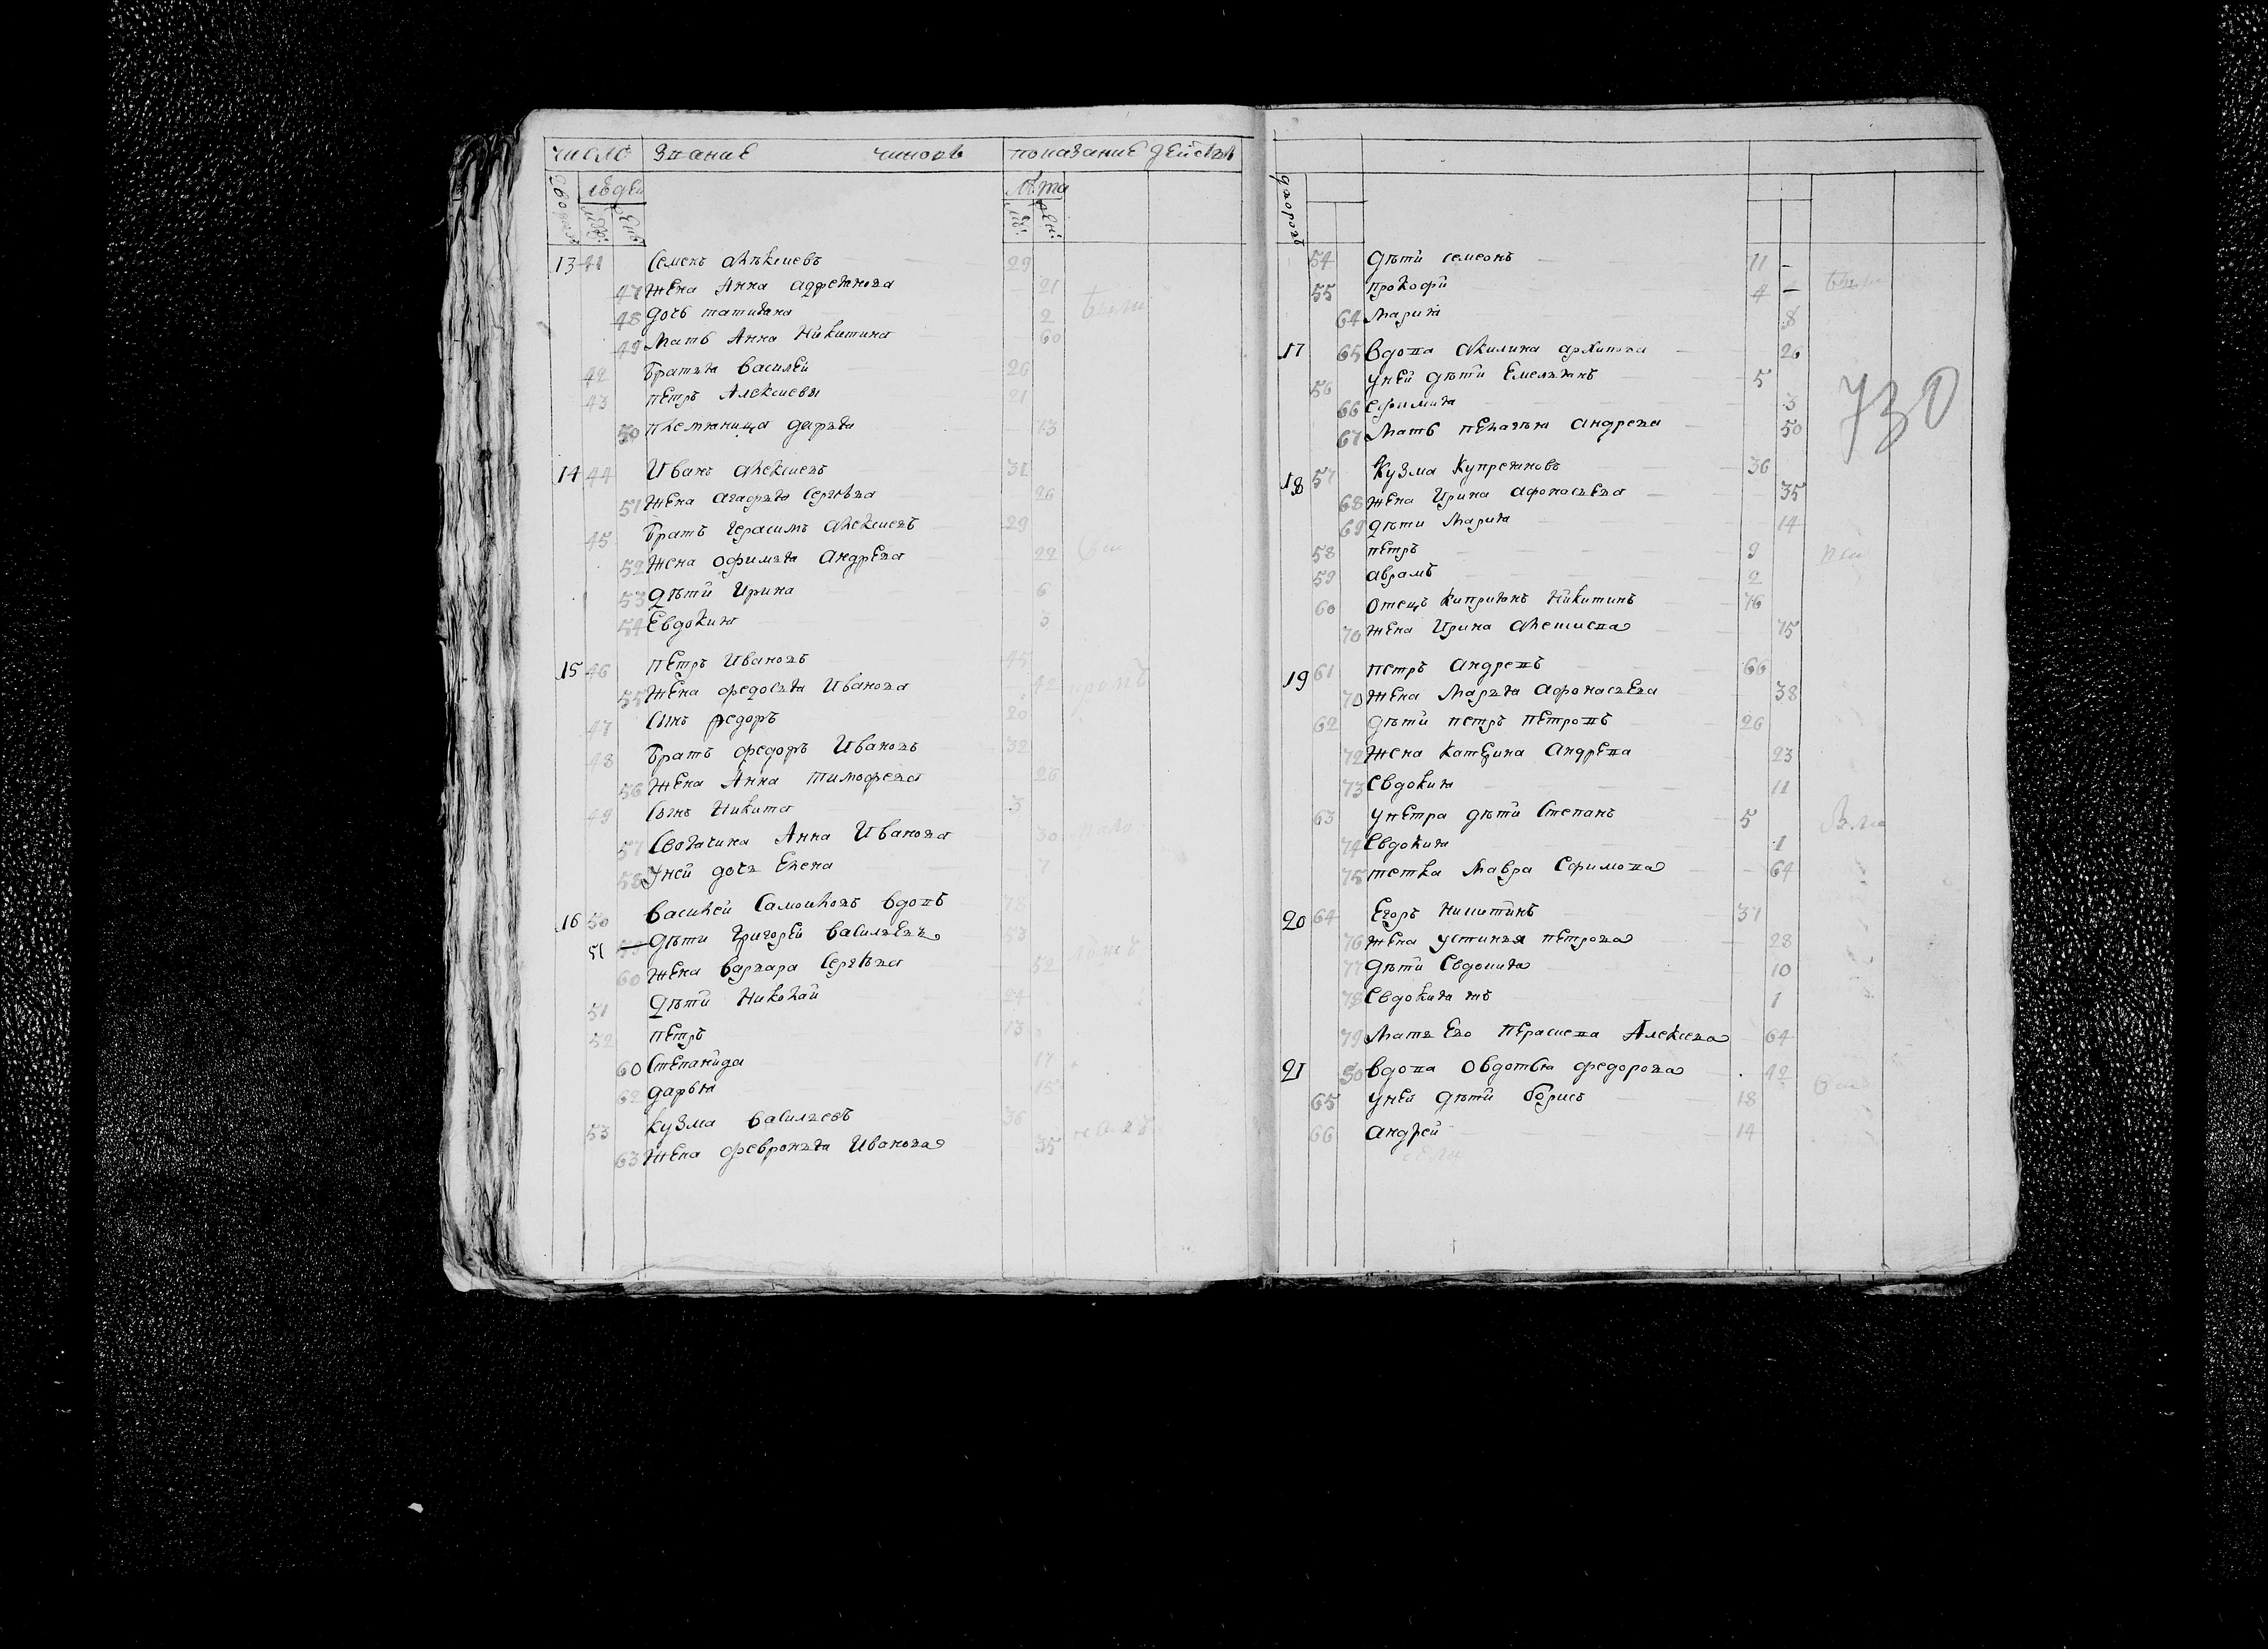 число Звание чиновъ показание действ
людей лѣта
дворовъ му: жен: му: жен:
13 41 Семенъ Алѣксиевъ 29
47 жена Анна Адреянова 21
48 дочь татияна 2
49 Мать Анна Никитина 60
42 братья Василеи 26
43 петръ Алексиевы 21
50 племяница дарья 13
14 44 Иванъ Алексиевъ 31
51 жена агафья Сергѣва 26
45 братъ Герасимъ Алексиевъ 29
52 жена офимья Андрева 22
53 дѣти Ирина 6
54 Евдокия 3
15 46 петръ Ивановъ 45
55 жена федосья Иванова 42
47 Сынъ федоръ 20
48 братъ федоръ Ивановъ 32
56 жена Анна тимофева 26
49 Сынъ Никита 3
57 Своячина Анна Иванова 30
58 Уней дочь Елена 7
16 50 Василей Самоиловъ вдовъ 78
51 дѣти Григорей Васильевъ 53
60 жена Варвара Сергѣва 52
51 дѣти Николай 24
52 петръ 13
60 Степанида 17
62 дарья 15
53 кузма Васильевъ 36
63 жена февронья Иванова 35
дворовъ
54 дѣти семеонъ 11 -
55 прокофи 4 -
64 Мария 8
17 65 вдова Акилина архипова 26
56 уней дѣти Емельянъ 5
66 Ефимия 3
67 Мать пелагея андрева 50
730
18 57 кузма купреяновъ 36
68 жена Ирина афонасьева 35
69 дѣти Мария 14
58 петръ 9
59 аврамъ 2
60 Отецъ киприянъ Никитинъ 76
70 жена Ирина Алетиева 75
19 61 петръ андревъ 66
70 жена Марья афонасьева 38
62 дѣти петръ петровъ 26
72 жена катерина андрева 23
73 Евдокия 11
63 упетра дѣти Степанъ 5
74 Евдокия 1
75 тетка Мавра Ефимова 64
20 64 Егоръ Никитинъ 37
76 жена устинья петрова 28
77 дѣти Евдокия 10
78 Евдокия жъ 1
79 Мать Его Алексева 64
21 50 вдова Овдотья федорова 42
65 уней дѣти борисъ 18
66 андрей 14